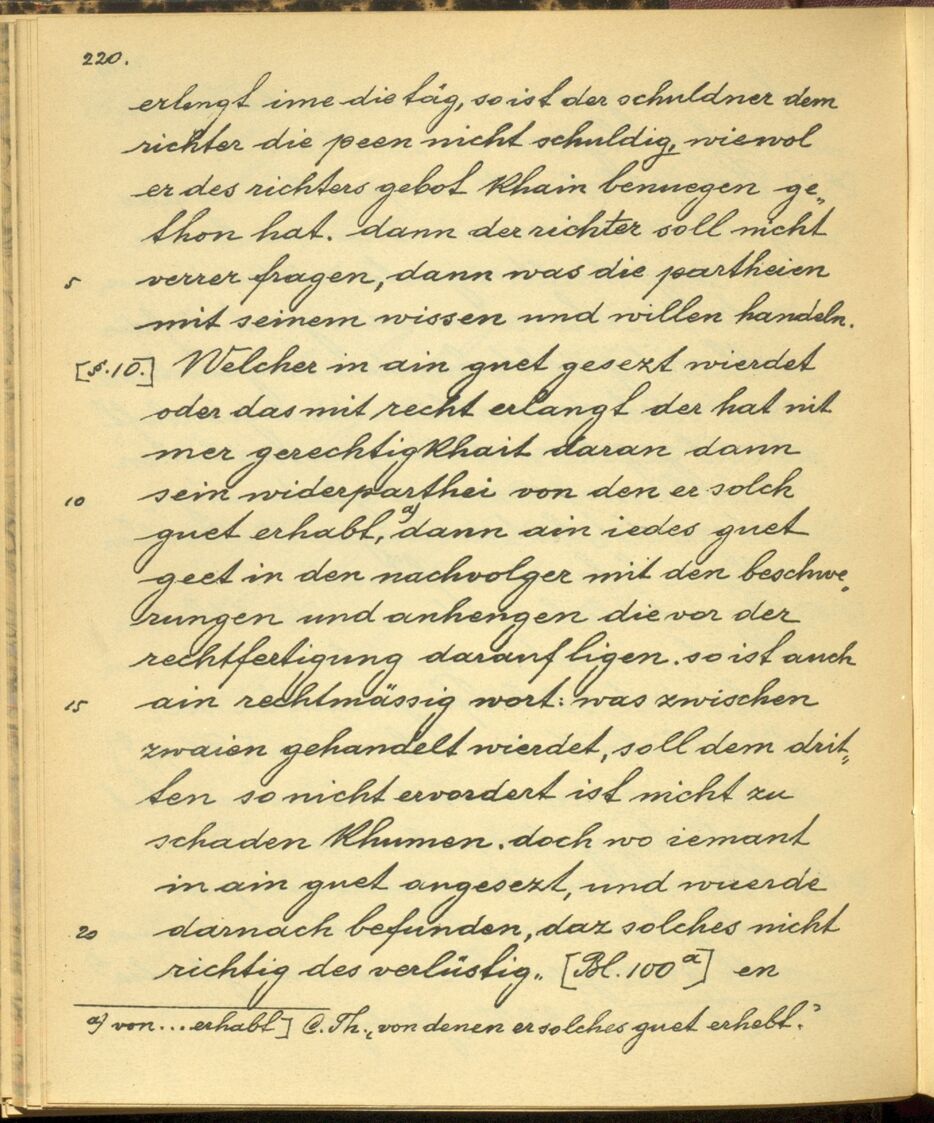 220.
erlengt ime die täg, so ist der schuldner dem
richter die peen nicht schuldig, wiewol
er des richters gebot khain benuegen ge„
thon hat. dann der richter soll nicht
5 verrer fragen, dann was die partheien
mit seinem wissen und willen handeln.
[§.10.] Welcher in ain guet gesezt wierdet
oder das mit recht erlangt der hat nit
mer gerechtigkhait daran dann
10 sein widerparthei von den er solch
guet erhabt,a) dann ain iedes guet
geet in den nachvolger mit den beschwe„
rungen und anhengen die vor der
rechtfertigung darauf ligen. so ist auch
15 ain rechtmässig wort: was zwischen
zwaien gehandelt wierdet, soll dem drit„
ten so nicht ervordert ist nicht zu
schaden khumen. doch wo iemant
in ain guet angesezt, und wuerde
20 darnach befunden, daz solches nicht
richtig des verlüstig„ [Bl. 100a] en
a) von...erhabt] C. Th. „von denen er solches guet erhebt.“